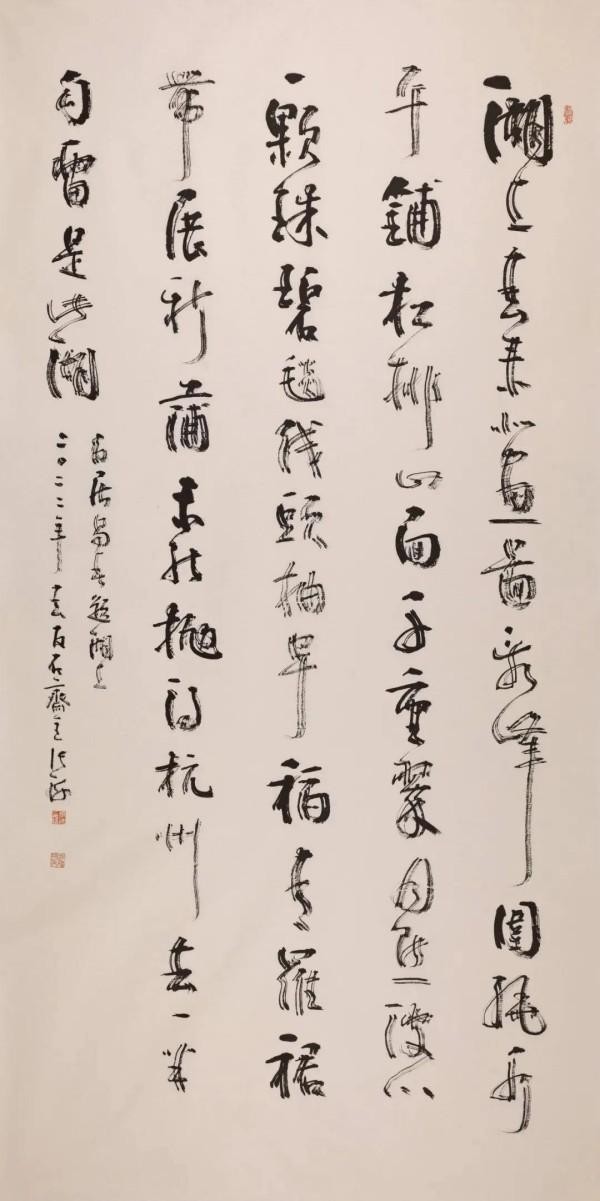 湖上春来似畫圖亂峰圍繞水
平鋪松排山面千重翠月點波心
一顆珠碧毯綫頭抽早稻青羅裙
帶展新蒲未能抛得杭州去一半
勾留是此湖
白居易春題湖上
二〇二二年 石齋主